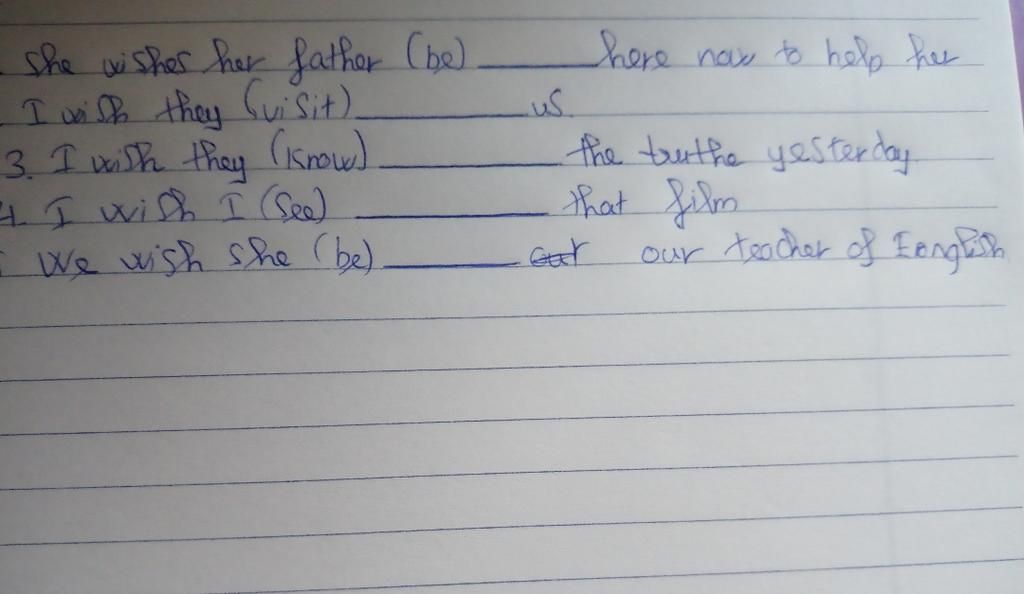 She wishes her father (be) ______ here now to help her
I wish they (visit) ______ us.
3. I wish they (know) ______ the truthe yesterday.
4. I wish I (see) ______ that film
We wish she (be) ______ our teacher of Eenglish